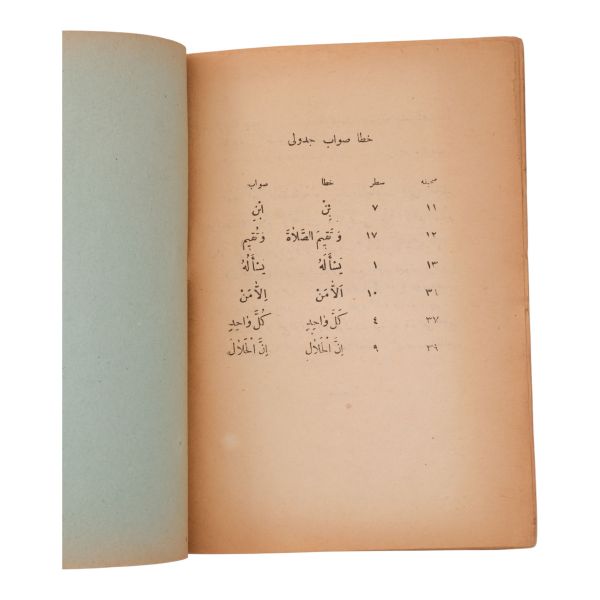 خطا صواب جدولی
صحیفه سطر خطا صواب
١١ ٧ بْنِ ابْنِ
١٢ ١٧ وَ تَقِيمَ الصَّلاٰةَ وَ تُقِيمَ
١٣ ١ يَسْأَلَهُ يَسْأَلُهُ
١٠ اَلاّٰ مَنْ اِلاّٰ مَنْ
٣٧ ٤ كَلَّ وٰاحِدٍ كُلَّ وٰاحِدٍ
٣٩ ٩ اِنَّ الْحَلاٰلِ اِنَّ الْحَلاٰلَ